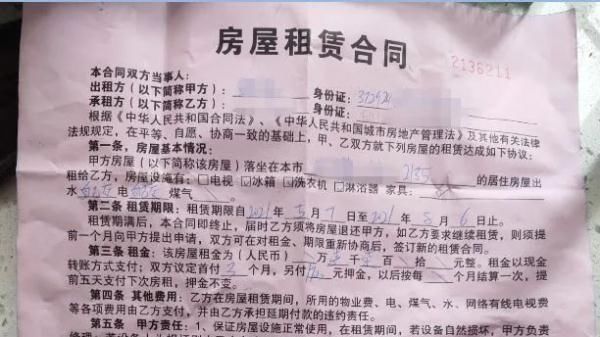 房屋租赁合同
2136211
本合同双方当事人：
出租方（以下简称甲方）： 身份证：
承租方（以下简称乙方）： 身份证：
根据《中华人民共和国合同法》、《中华人民共和国城市房地产管理法》及其他有关法律
法规规定，在平等、自愿、协商一致的基础上，甲、乙双方就下列房屋的租赁达成如下协议：
第一条，房屋基本情况：
甲方房屋（以下简称该房屋）落坐在本市 2135 的居住房屋出
租给乙方，房屋设施有：□电视 □冰箱 □洗衣机 □淋浴器 家具：
水 电 煤气 。
第二条 租赁期限：租赁期限自2021年5月7日至2021年8月6日止。
租赁期满后，本合同即终止，届时乙方须将房屋退还甲方，如乙方要求继续租赁，则须提
前一个月向甲方提出申请，双方可在对租金、期限重新协商后，签订新的租赁合同。
第三条 租金：该房屋租金为（人民币） 万 仟 佰 拾 元整。租金以现金
转账方式支付；双方议定首付3个月，另付 元押金，以后按每 个月结算一次，提
前五天支付下次房租，押金不变。
第四条 其他费用：乙方在房屋租赁期间，所用的物业费、电、煤气、水、网络有线电视费
等各项费用由乙方支付，并由乙方承担延期付款的违约责任。
第五条 甲方责任：1、保证房屋设施正常使用，在租赁期间，若设备自然损坏，甲方负责